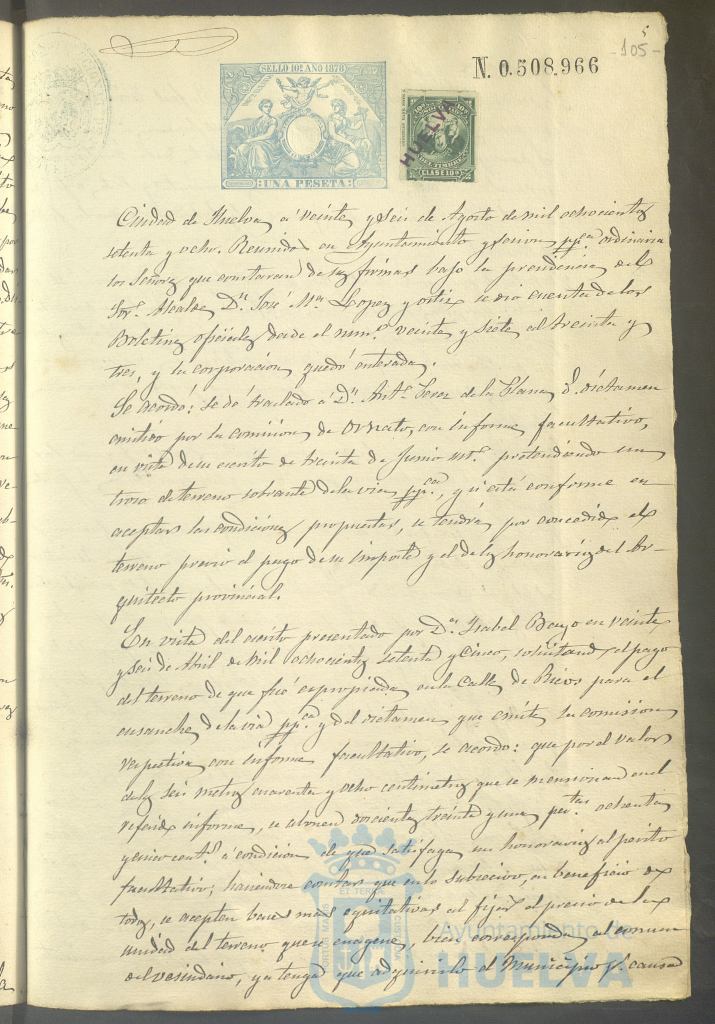 105
SELLO 10º AÑO 1878
UNA PESETA
N. 0.508.966
HUELVA
DEL TIMBRE
CLASE 10ª
Ciudad de Huelva á veinte y seis de Agosto de mil ochocientos
setenta y ocho. Reunidos en Ayuntamiento y sesion ppca ordinaria
los Señores que constaran de sus firmas bajo la presidencia del
Sor. Alcalde Dn. José Ma Lopez y ortiz se dió cuenta de los
Boletines oficiales desde el numº veinte y siete al treinta y
tres, y la corporacion quedó enterada.
Se acordó: se dé traslado á Dn. Antº Perez de la Llana dl dictamen
emitido por la comision de ornato, con informe facultativo,
en vista de su escrito de treinta de Junio utº pretendiendo un
trozo de terreno sobrante de la via ppca, y si está conforme en
aceptar las condiciones propuestas, se tendrá por concedido el
terreno previo el pago de su importe y el de los honorarios del Ar-
quitecto provincial.
En vista del escrito presentado por Da. Isabel Bayo en veinte
y seis de Abril de mil ochocientos setenta y cinco, solicitando el pago
del terreno de que fué expropiada en la Calle de Ricos para el
ensanche de la via ppca y del dictamen que emite la comision
respectiva con informe facultativo, se acordó: que por el valor
de los seis metros cuarenta y ocho centimetros que se mencionan en el
referido informe, se abonen doscientas treinta y una ptas. ochenta
y cinco cents. á condicion de que satisfaga los honorarios al perito
facultativo; haciendose constar que en lo subcecivo, en beneficio de
todos, se acepten bases mas equitativas al fijar el precio de la
unidad del terreno que se enagene, bien corresponda al comun
del vesindario, ya tenga que adquirirlo el Municipio pr. causa
Ayuntamiento de
HUELVA